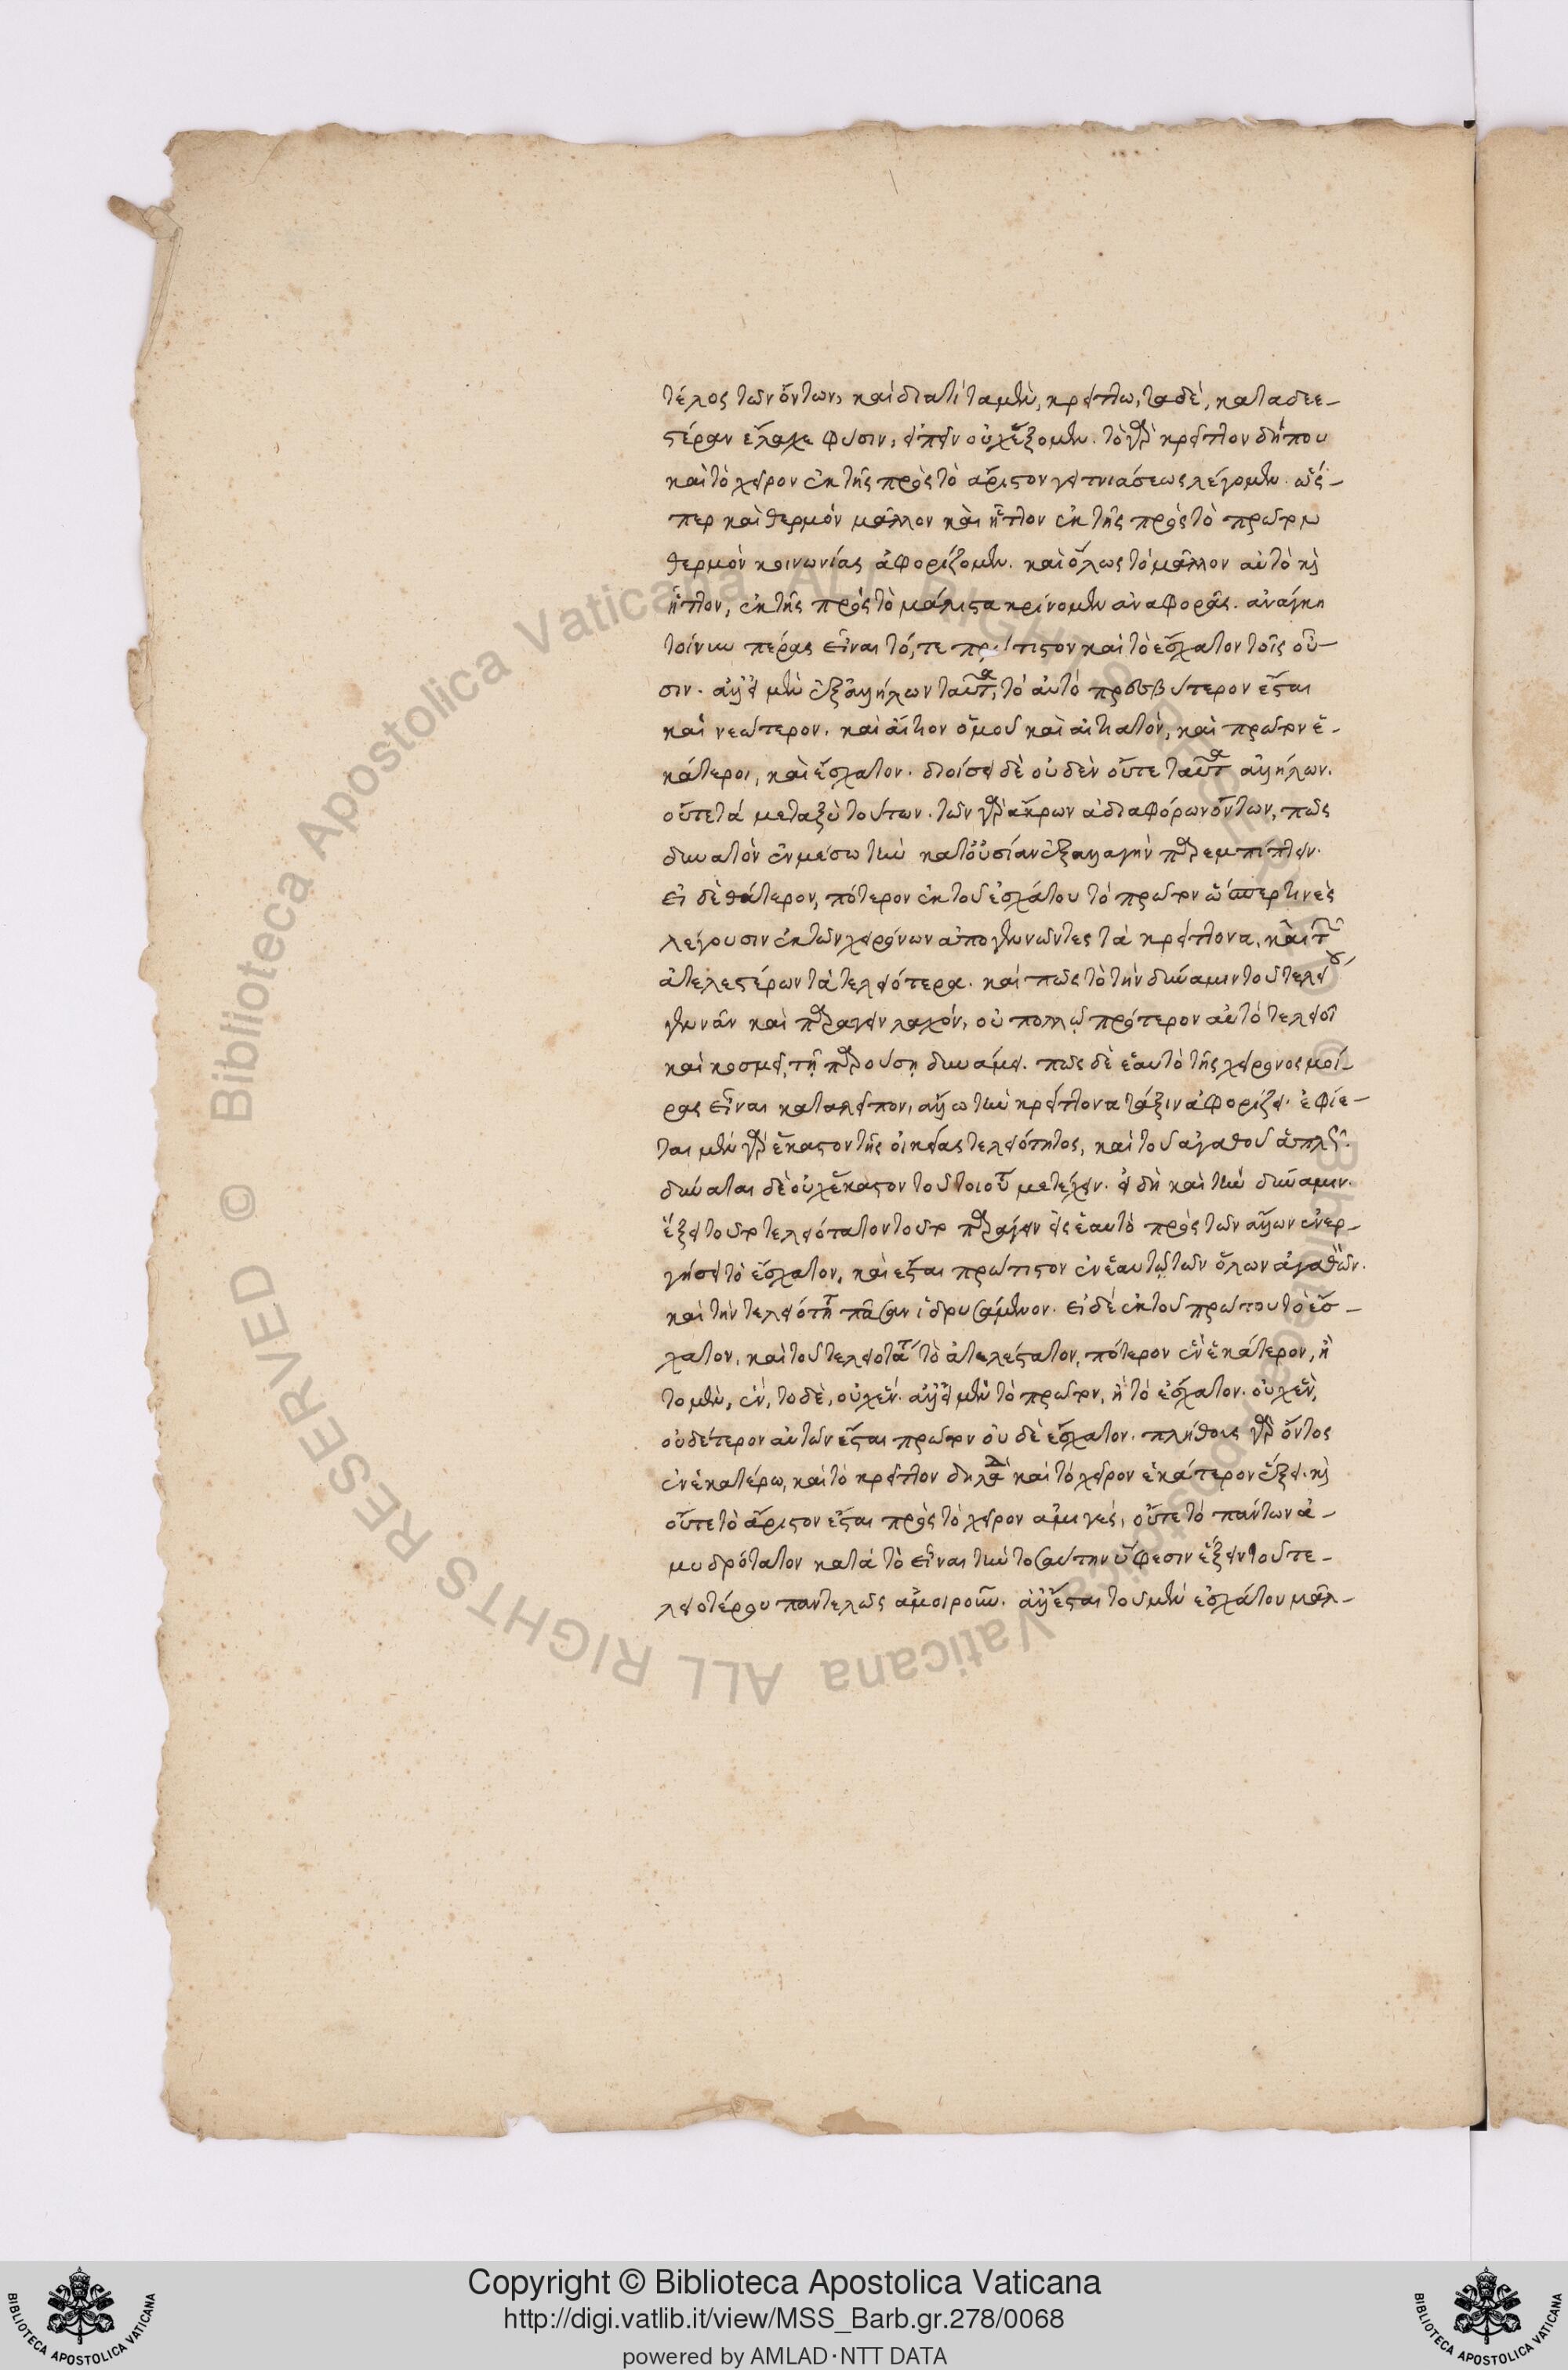 τέλος τῶν ὄντων, καὶ διατί τα μὲν, κρείττω, τα δὲ, καταδεε-
στέραν ἔλαχε φύσιν, εἰπεῖν οὐχ ἕξομεν. τὸ γὰρ κρεῖττον δήπου
καὶ τὸ χεῖρον ἐκ τῆς πρὸς τὸ ἄριστον γειτνιάσεως λέγομεν. ὥς-
περ καὶ θερμόν μᾶλλον καὶ ἧττον ἐκ τῆς πρὸς τὸ πρῶτον
θερμὸν κοινωνίας ἀφορίζομεν. καὶ ὅλως τὸ μᾶλλον αὐτὸ καὶ
ἧττον, ἐκ τῆς πρὸς τὸ μάλιστα κρίνομεν ἀναφορᾶς. ἀνάγκη
τοίνυν πέρας εἶναι τό, τε πρώτιστον καὶ τὸ ἔσχατον τοῖς οὖ-
σιν. ἀλλ' εἰ μὲν ἐξ ἀλλήλων ταῦτα, τὸ αὐτό πρεσβύτερον ἔσται
καὶ νεώτερον. καὶ αἴτιον ὁμοῦ καὶ αἰτιατόν, καὶ πρῶτον ἑ-
κάτεροι, καὶ ἔσχατον. διοίσει δὲ οὐδὲν οὔτε ταῦτα ἀλλήλων.
οὔτε τὰ μεταξὺ τούτων. τῶν γὰρ ἄκρων ἀδιαφόρων ὄντων, πῶς
δυνατὸν ἐν μέσω τὴν κατ' οὐσίαν ἐξαλλαγὴν παρεμπίπτειν.
εἰ δὲ θάτερον, πότερον ἐκ τοῦ ἐσχάτου τὸ πρῶτον ὥσπερ τινὲς
λέγουσιν ἐκ τῶν χειρόνων ἀπογεννῶντες τὰ κρείττονα, καὶ τῶν
ἀτελεστέρων τὰ τελειότερα. καὶ πῶς τὸ τὴν δύναμιν τοῦ τελείου
γεννᾶν καὶ παράγειν λαχόν, οὐ πολλῷ πρότερον αὐτὸ τελειοῖ
καὶ κοσμεῖ, τῇ παρούσῃ δυνάμει. πῶς δὲ ἑαυτὸ τῆς χείρονος μοί-
ρας εἶναι καταλεῖπον, ἄλλω τὴν κρείττονα τάξιν ἀφορίζει. ἐφίε-
ται μὲν γὰρ ἕκαστον τῆς οἰκείας τελειότητος, καὶ τοῦ ἀγαθοῦ ἁπλῶς.
δύναται δὲ οὐχ ἕκαστον τοῦ τοιούτου μετέχειν. εἰ δὴ καὶ τὴν δύναμιν
ἕξει τοῦτο τελειότατον τοῦτο παράγειν εἰς ἑαυτὸ πρὸς τῶν ἄλλων ἐνερ-
γήσει τὸ ἔσχατον, καὶ ἔσται πρώτιστον ἐν ἑαυτῷ τῶν ὅλων ἀγαθῶν.
καὶ τὴν τελειότητα πᾶσαν ἱδρυσάμενον. εἰ δὲ ἐκ τοῦ πρώτου τὸ ἔσ-
χατον, καὶ τοῦ τελειοτάτου τὸ ἀτελέστατον, πότερον ἓν ἑκάτερον, ἢ
το μὲν, ἐν, το δὲ, οὐχ ἕν. ἀλλ' εἰ μὲν τὸ πρῶτον, ἢ τὸ ἔσχατον. οὐχ ἓν,
οὐδέτερον αὐτῶν ἔσται πρῶτον οὐ δὲ ἔσχατον. πλήθους γὰρ ὄντος
ἐν ἑκατέρω, καὶ τὸ κρεῖττον δηλαδὴ καὶ τὸ χεῖρον ἑκάτερον ἕξει. καὶ
οὔτε τὸ ἄριστον ἔσται πρὸς τὸ χεῖρον ἀμιγές, οὔτε τὸ πάντων ἀ-
μυδρότατον κατὰ τὸ εἶναι τὴν τοσαύτην ὕφεσιν ἕξειν τοῦ τε-
λειοτέρου παντελῶς ἀμοιροῦν. ἀλλ' ἔσται τοῦ μὲν ἐσχάτου μᾶλ-
Copyright © Biblioteca Apostolica Vaticana
http://digi.vatlib.it/view/MSS_Barb.gr.278/0068
powered by AMLAD·NTT DATA
BIBLIOTECA APOSTOLICA VATICANA
BIBLIOTECA APOSTOLICA VATICANA
© Biblioteca Apostolica Vaticana ALL RIGHTS RESERVED © Biblioteca Apostolica Vaticana ALL RIGHTS RESERVED